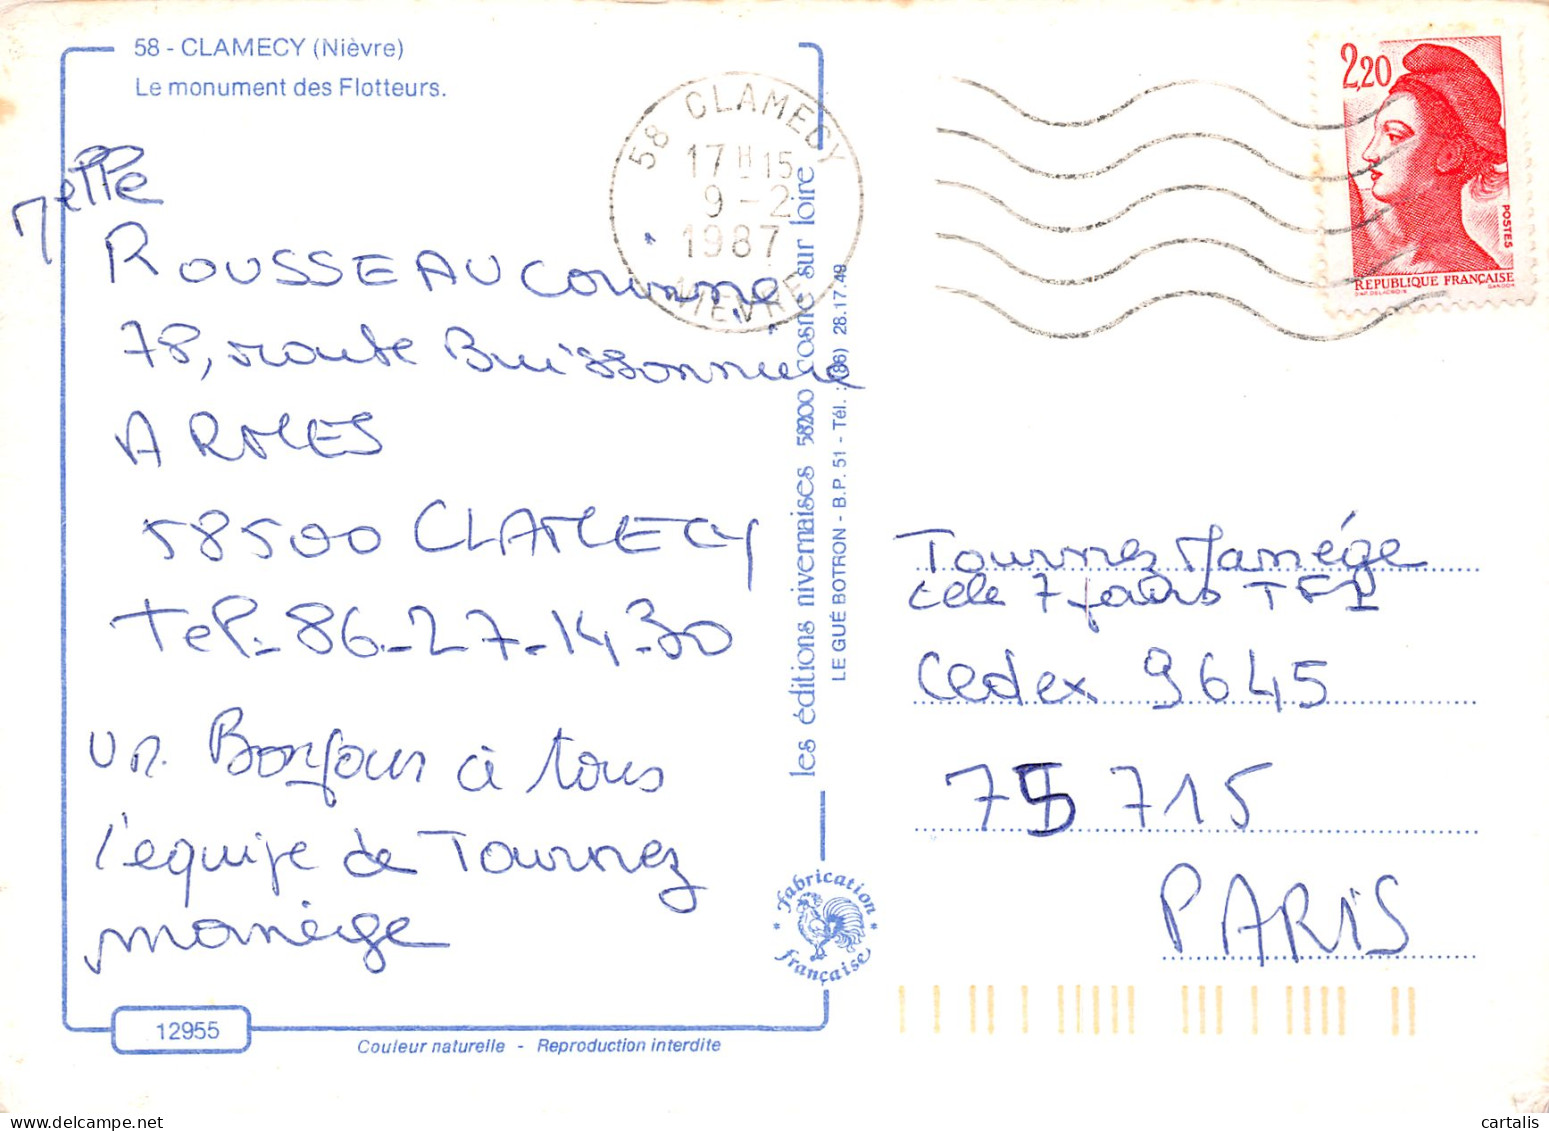 58 - CLAMECY (Nièvre)
Le monument des Flotteurs.
Melle
ROUSSEAU Corinne
78, route Buissonnière
ARMES
58500 CLAMECY
Tel.- 86-27-14-30
un Bonjour à tous
l'equipe de Tournez
manège
58 CLAMECY
17H15
9-2
1987
NIEVRE
les éditions nivernaises 58200 cosne sur loire
LE GUÉ BOTRON - B.P. 51 - Tél. : (86) 28.17.49
2,20
POSTES
REPUBLIQUE FRANÇAISE
D'AP. DELACROIX GANDON
Tournez Manége
Cedex 9645
75 715
PARIS
Fabrication
française
12955
Couleur naturelle - Reproduction interdite
cartalis